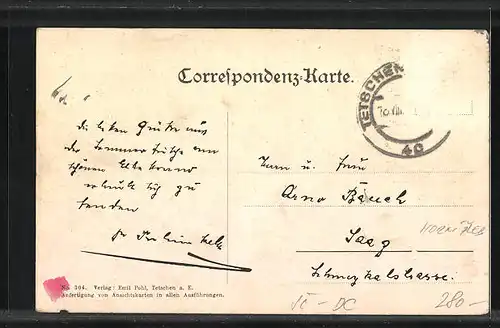 Correspondenz-Karte.
TETSCHEN
4c
die besten Grüße aus
der Sommerfrische am
schönen Elbestrand
erlaubt sich zu
senden
Herrn u. Frau
Arno Bäuch
Saaz
Schmeykalstrasse.
No. 304. Verlag: Emil Pohl, Tetschen a. E.
Anfertigung von Ansichtskarten in allen Ausführungen.
TE - DC
280.-